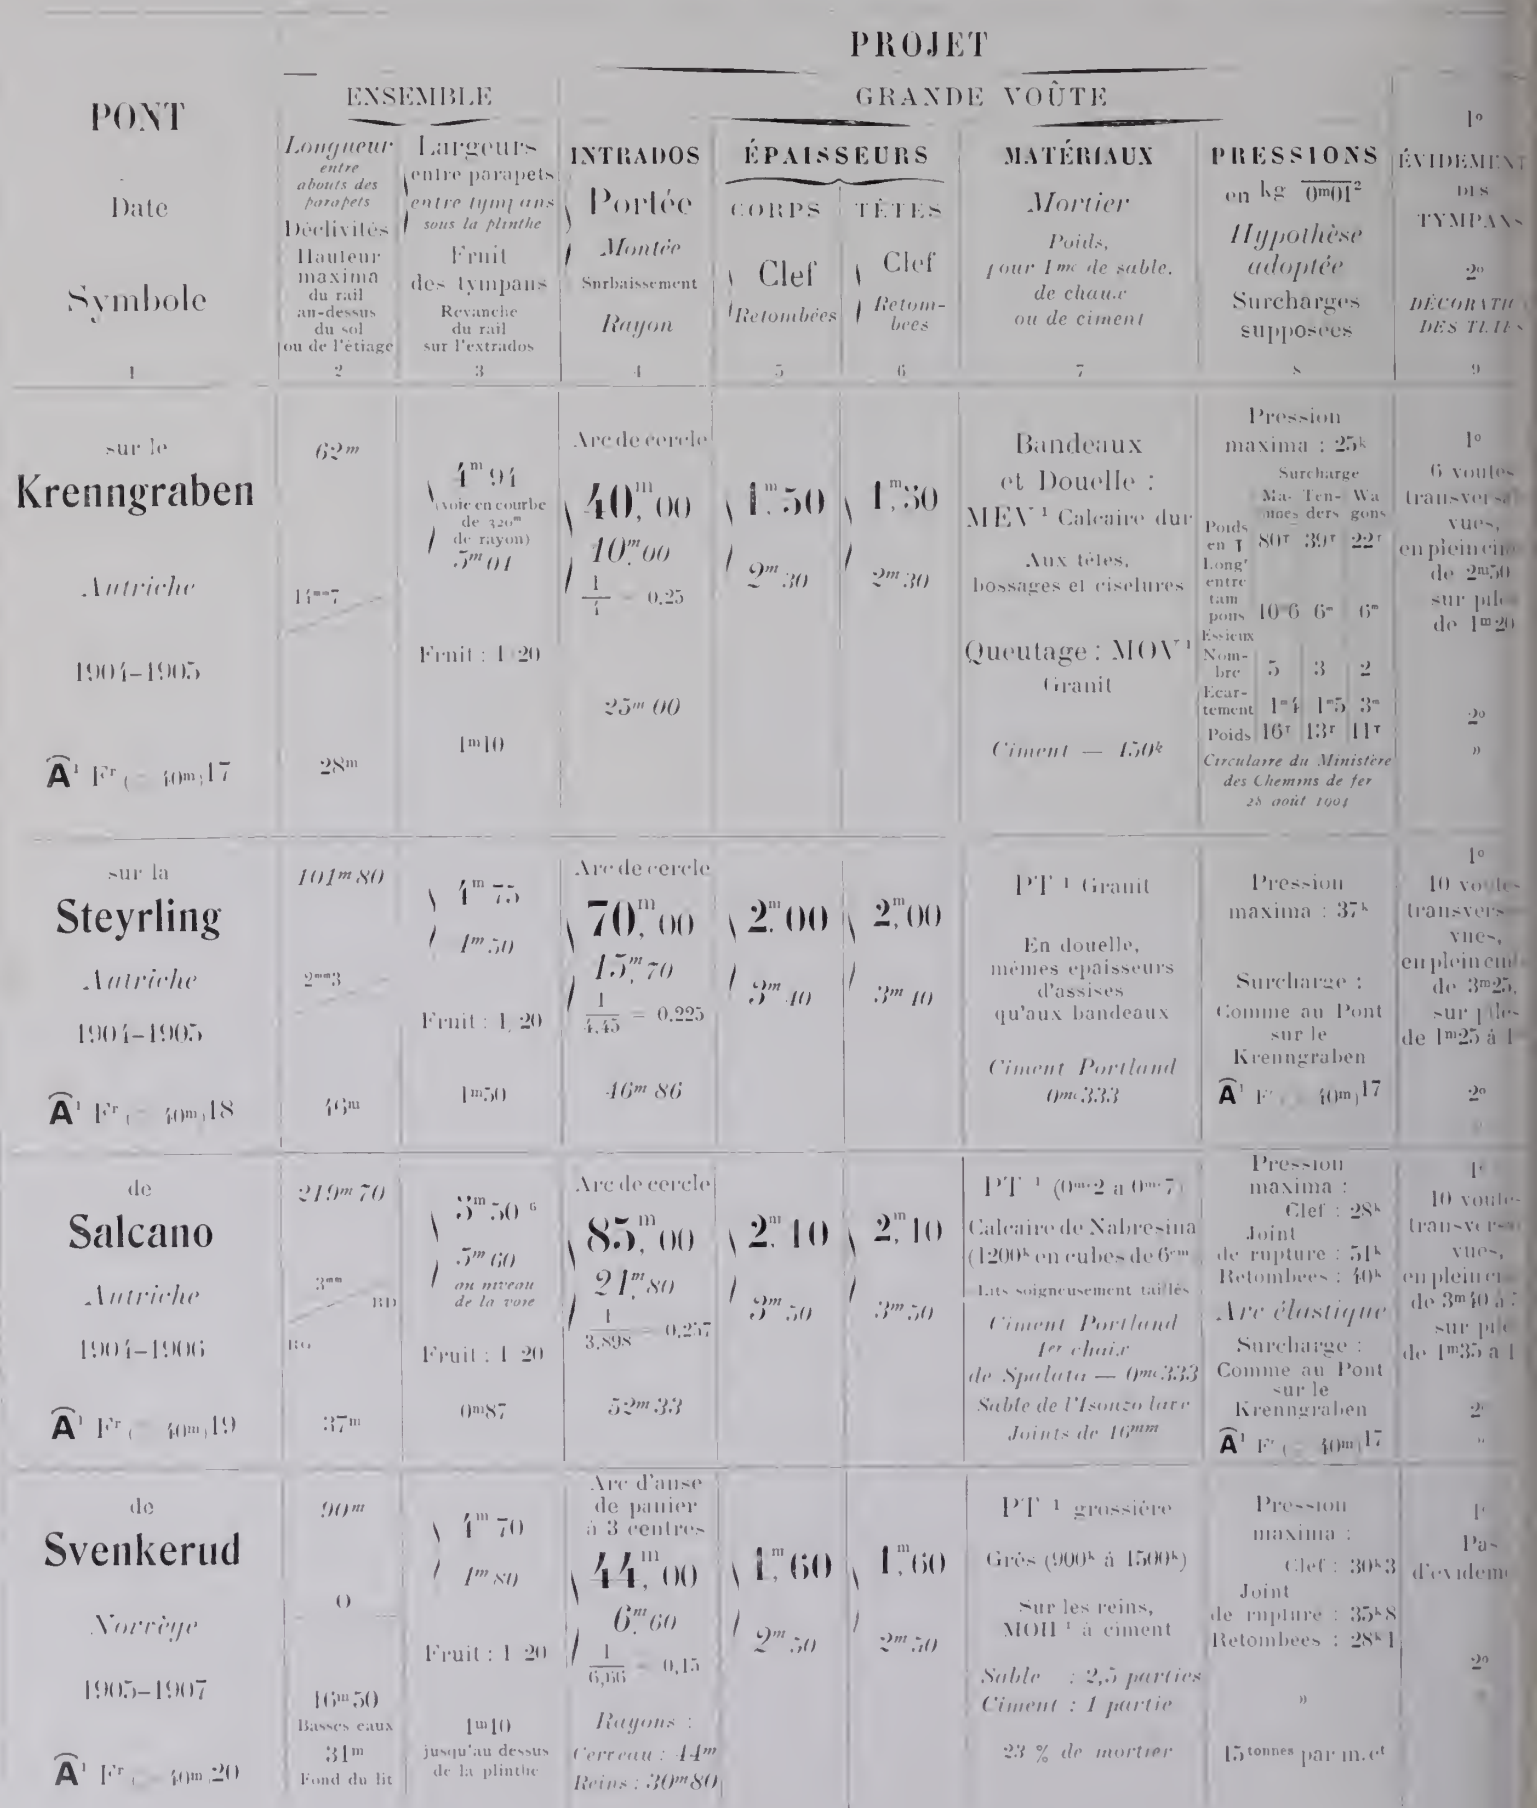 PROJET
ENSEMBLE
GRANDE VOÛTE
PONT
Date
Symbole
1
Longueur
entre
abouts des
parapets
Déclivités
Hauteur
maxima
du rail
au-dessus
du sol
ou de l'étiage
2
Largeurs
entre parapets
entre tympans
sous la plinthe
Fruit
des tympans
Revanche
du rail
sur l'extrados
3
INTRADOS
Portée
Montée
Surbaissement
Rayon
4
ÉPAISSEURS
CORPS
Clef
Retombées
5
TÊTES
Clef
Retom-
bées
6
MATÉRIAUX
Mortier
Poids,
pour 1mc de sable,
de chaux
ou de ciment
7
PRESSIONS
en kg 0m01²
Hypothèse
adoptée
Surcharges
supposées
8
1º
ÉVIDEMENT
DES
TYMPANS
2º
DES
9
sur le
Krenngraben
Autriche
1904–1905
Â¹ Fr ( 40m)17
62m
14mm7
28m
4m 94
(voie en courbe
de 320m
de rayon)
5m 04
Fruit : 1/20
1m10
Arc de cercle
40,m00
10,m00
1/4 = 0,25
25m 00
1,m50
2m 30
1,m50
2m 30
Bandeaux
et Douelle :
MEV ¹ Calcaire dur
Aux têtes,
bossages et ciselures
Queutage : MOV ¹
Granit
Ciment — 450k
Pression
maxima : 25k
Surcharge
Ma- Ten- Wa
ders gons
Poids
en T 80T 39T 22T
Longr
entre
tam
pons 10m6 6m 6m
Essieux
Nom-
bre 5 3 2
Ecar-
tement 1m4 1m5 3m
Poids 16T 13T 11T
Circulaire du Ministère
des Chemins de fer
28 août 1904
1º
6 voûtes
vues,
de 2m50
de 1m20
2º
»
sur la
Steyrling
Autriche
1904–1905
Â¹ Fr ( 40m)18
101m 80
2mm3
46m
4m 75
4m 50
Fruit : 1/20
1m50
Arc de cercle
70,m00
15,m70
1/4,45 = 0,225
46m 86
2,m00
3m 40
2,m00
3m 40
PT ¹ Granit
En douelle,
mêmes épaisseurs
d'assises
qu'aux bandeaux
Ciment Portland
0mc333
Pression
maxima : 37k
Surcharge :
Comme au Pont
sur le
Krenngraben
Â¹ Fr ( 40m)17
1º
10 voûtes
vues,
de 3m25,
sur piles
de 1m25 à
2º
de
Salcano
Autriche
1904–1906
Â¹ Fr ( 40m)19
219m 70
3mm
RD
RG
37m
5m 50 ⁶
5m 60
au niveau
de la voie
Fruit : 1/20
0m87
Arc de cercle
85,m00
21,m80
1/3,898 = 0,257
52m 33
2,m10
3m 50
2,m10
3m 50
PT ¹ (0mc2 à 0mc7)
Calcaire de Nabresina
(1200k en cubes de 6cm)
Lits soigneusement taillés
Ciment Portland
1er choix
de Spalato — 0mc333
Sable de l'Isonzo lavé
Joints de 16mm
Pression
maxima :
Clef : 28k
Joint
de rupture : 51k
Retombées : 40k
Arc élastique
Surcharge :
Comme au Pont
sur le
Krenngraben
Â¹ Fr ( 40m)17
10 voûtes
vues,
de 3m40 à
de 1m35 à
2º
de
Svenkerud
Norvège
1905–1907
Â¹ Fr ( 40m)20
90m
0
16m50
Basses eaux
31m
Fond du lit
4m 70
4m 80
Fruit : 1/20
1m10
jusqu'au dessus
de la plinthe
Arc d'anse
de panier
à 3 centres
44,m00
6,m60
1/6,66 = 0,15
Rayons :
Cerveau : 44m
Reins : 30m80
1,m60
2m 50
1,m60
2m 50
PT ¹ grossière
Grès (900k à 1500k)
Sur les reins,
MOH ¹ à ciment
Sable : 2,5 parties
Ciment : 1 partie
23 % de mortier
Pression
maxima :
Clef : 30k3
Joint
de rupture : 35k8
Retombées : 28k1
»
15 tonnes par m. ct
Pas
2º